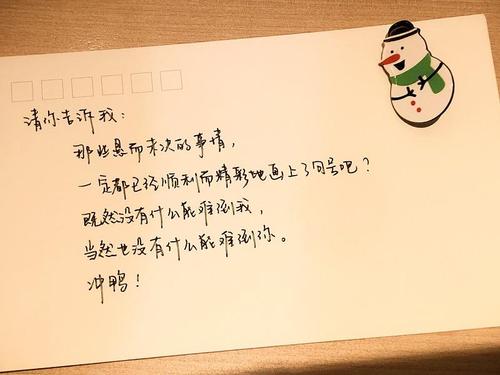 请你告诉我：
那些悬而未决的事情，
一定都已经顺利而精彩地画上了句号吧？
既然没有什么能难倒我，
当然也没有什么能难倒你。
冲鸭！